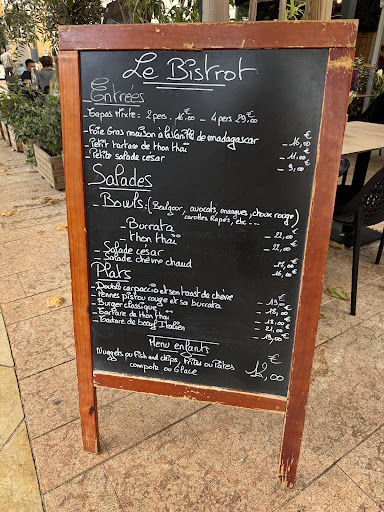 Le Bistrot
Entrées
- Tapas Mixte : 2 pers. 16,00 € - 4 pers 29,00 €
- Foie Gras maison à la Vanille de madagascar - 16,00 €
- Petit tartare de thon thaï - 11,00
- Petite salade césar - 9,00
Salades
- Bowls : (Boulgour, avocats, mangues, choux rouge)
carottes Rapés, etc ...
- Burrata - 22,00 €
- thon Thaï - 22,00
- Salade césar
- Salade chèvre chaud
Plats
- Double carpaccio et son toast de chèvre
- Pennes pistou rouge et sa burrata
- Burger classique
- Tartare de thon thaï
- Tartare de boeuf Italien
Menu enfants
Nuggets ou Fish and chips, Frites ou Pâtes
compote ou Glace 12,00 €